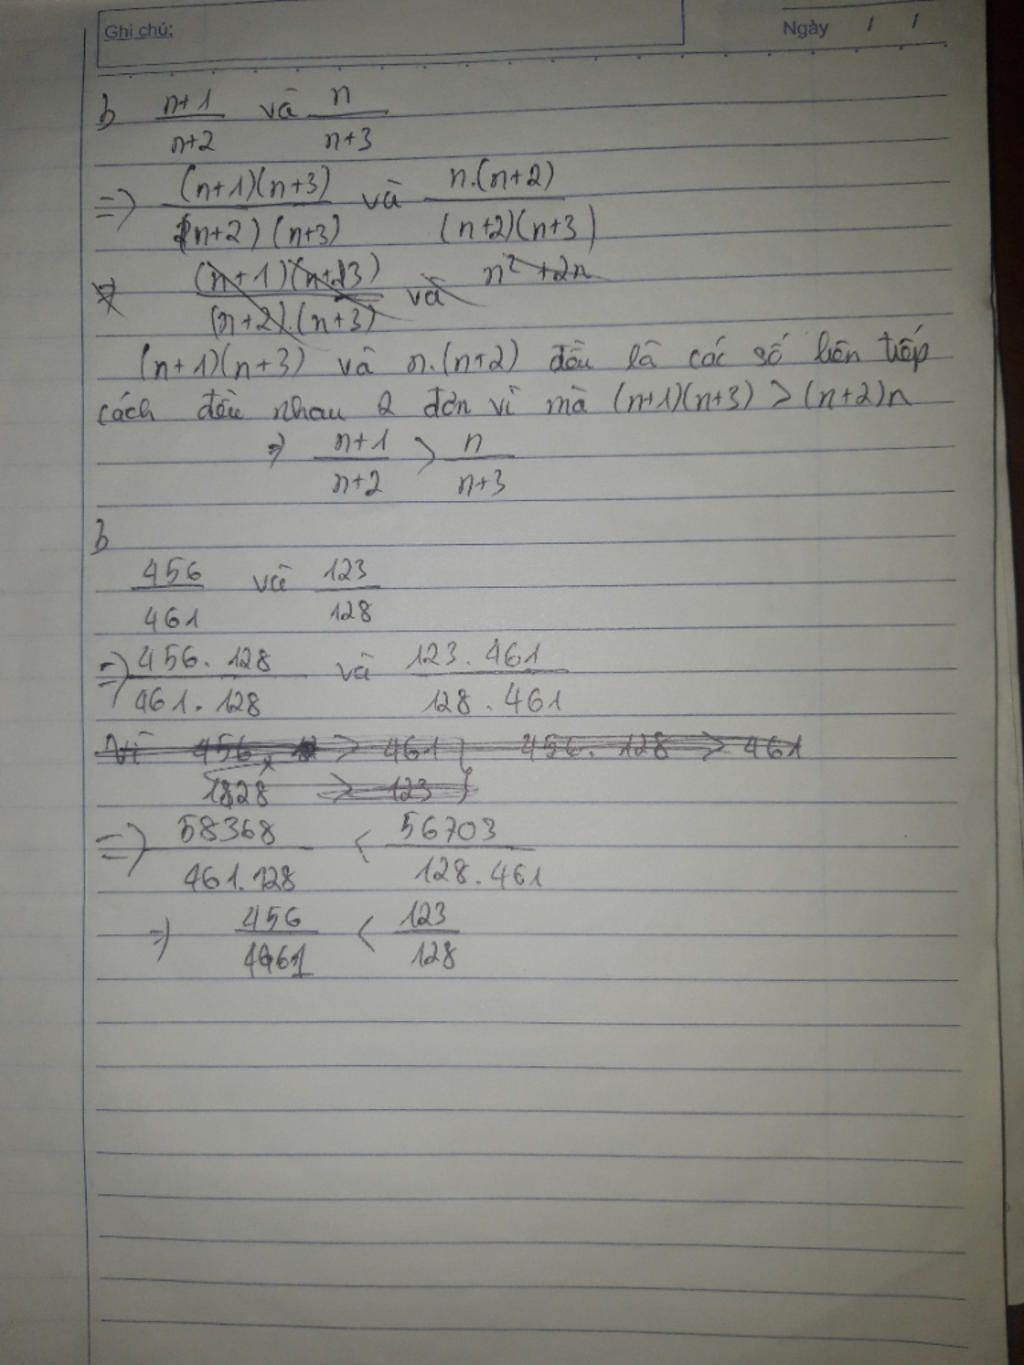 Ghi chú:
Ngày / /
b n+1/n+2 và n/n+3
=> (n+1)(n+3)/(n+2)(n+3) và n.(n+2)/(n+2)(n+3)
(n+1)(n+3)/(n+2).(n+3) và n² + 2n
(n+1)(n+3) và n.(n+2) đều là các số liên tiếp
cách đều nhau 2 đơn vì mà (n+1)(n+3) > (n+2)n
=> n+1/n+2 > n/n+3
b
456/461 và 123/128
=> 456.128/461.128 và 123.461/128.461
Vì 456 > 461 } 456.128 > 461
128 > 123 }
=> 58368/461.128 < 56703/128.461
=> 456/461 < 123/128